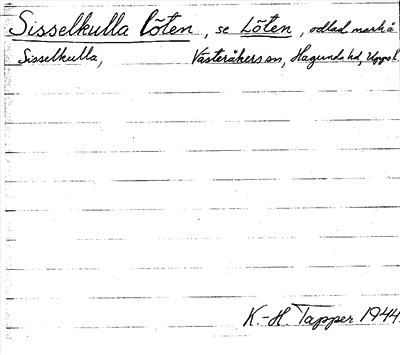 Sisselkulla löten, se Löten, odlad mark å
Sisselkulla, Västeråkers sn, Hagunda hd, Uppsl.
K.-H. Tapper 1944.